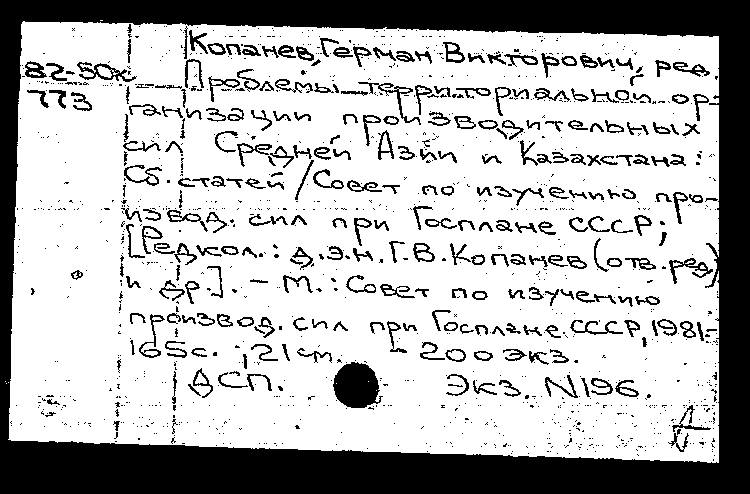 Копанев, Герман Викторович, ред.
82-50к
Проблемы территориальной ор-
773
ганизации производительных
сил Средней Азии и Казахстана:
Сб. статей / Совет по изучению про-
извод. сил при Госплане СССР;
[Редкол.: д.э.н. Г.В. Копанев (отв. ред)
и др.]. – М.: Совет по изучению
производ. сил при Госплане СССР, 1981.-
165 с. ; 21 см. - 200 экз.
ДСП. Экз. N196.